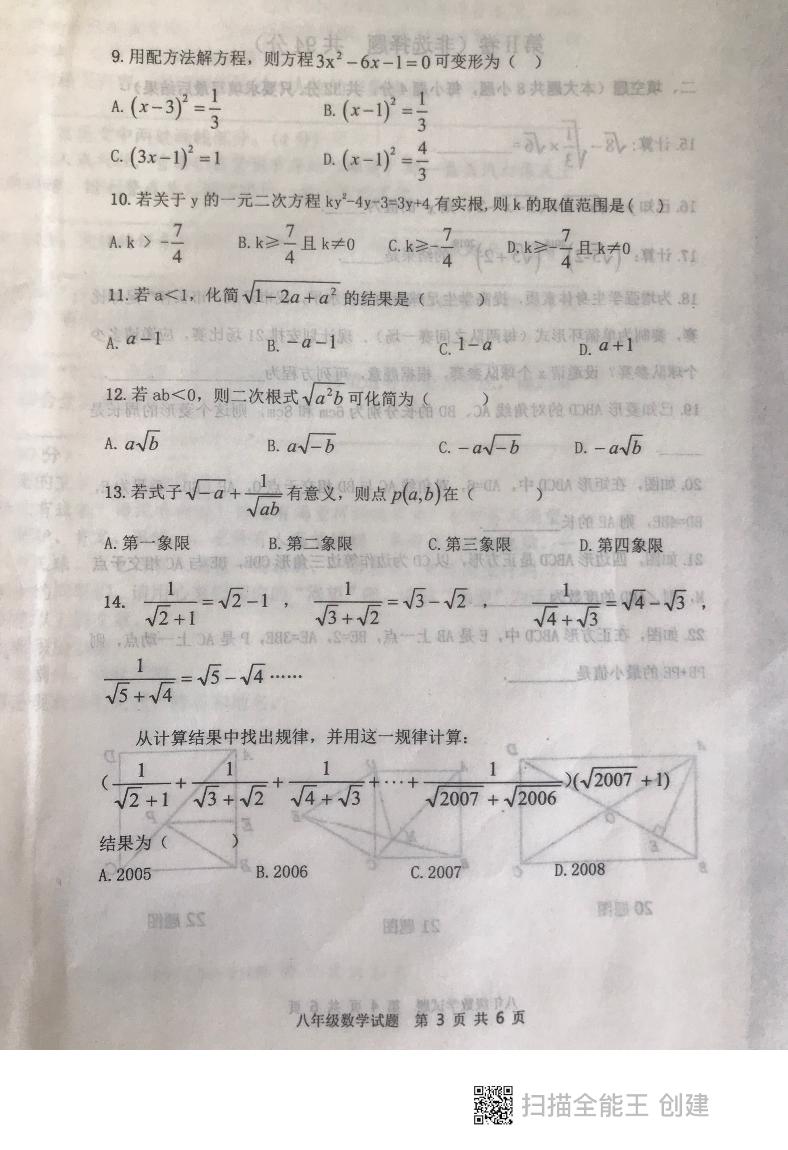 9. 用配方法解方程，则方程3x²－6x－1＝0可变形为（　）
A. (x－3)²＝1/3　　B. (x－1)²＝1/3
C. (3x－1)²＝1　　D. (x－1)²＝4/3
10. 若关于 y 的一元二次方程 ky²-4y-3=3y+4 有实根, 则 k 的取值范围是(　)
A. k > -7/4　　B. k≥7/4 且 k≠0　　C. k≥-7/4　　D. k≥-7/4 且 k≠0
11. 若 a＜1，化简 √(1－2a＋a²) 的结果是（　　）
A. a－1　　B. －a－1　　C. 1－a　　D. a＋1
12. 若 ab＜0，则二次根式√(a²b) 可化简为（　　）
A. a√b　　B. a√(－b)　　C. －a√(－b)　　D. －a√b
13. 若式子√(－a)＋1/√(ab) 有意义，则点 p(a,b)在（　　）
A. 第一象限　　B. 第二象限　　C. 第三象限　　D. 第四象限
14. 1/(√2＋1)＝√2－1 ，1/(√3＋√2)＝√3－√2 ，1/(√4＋√3)＝√4－√3 ，
1/(√5＋√4)＝√5－√4 ……
从计算结果中找出规律，并用这一规律计算：
(1/(√2＋1)＋1/(√3＋√2)＋1/(√4＋√3)＋…＋1/(√2007＋√2006))(√2007＋1)
结果为（　　）
A. 2005　　B. 2006　　C. 2007　　D. 2008
八年级数学试题　第 3 页 共 6 页
扫描全能王 创建